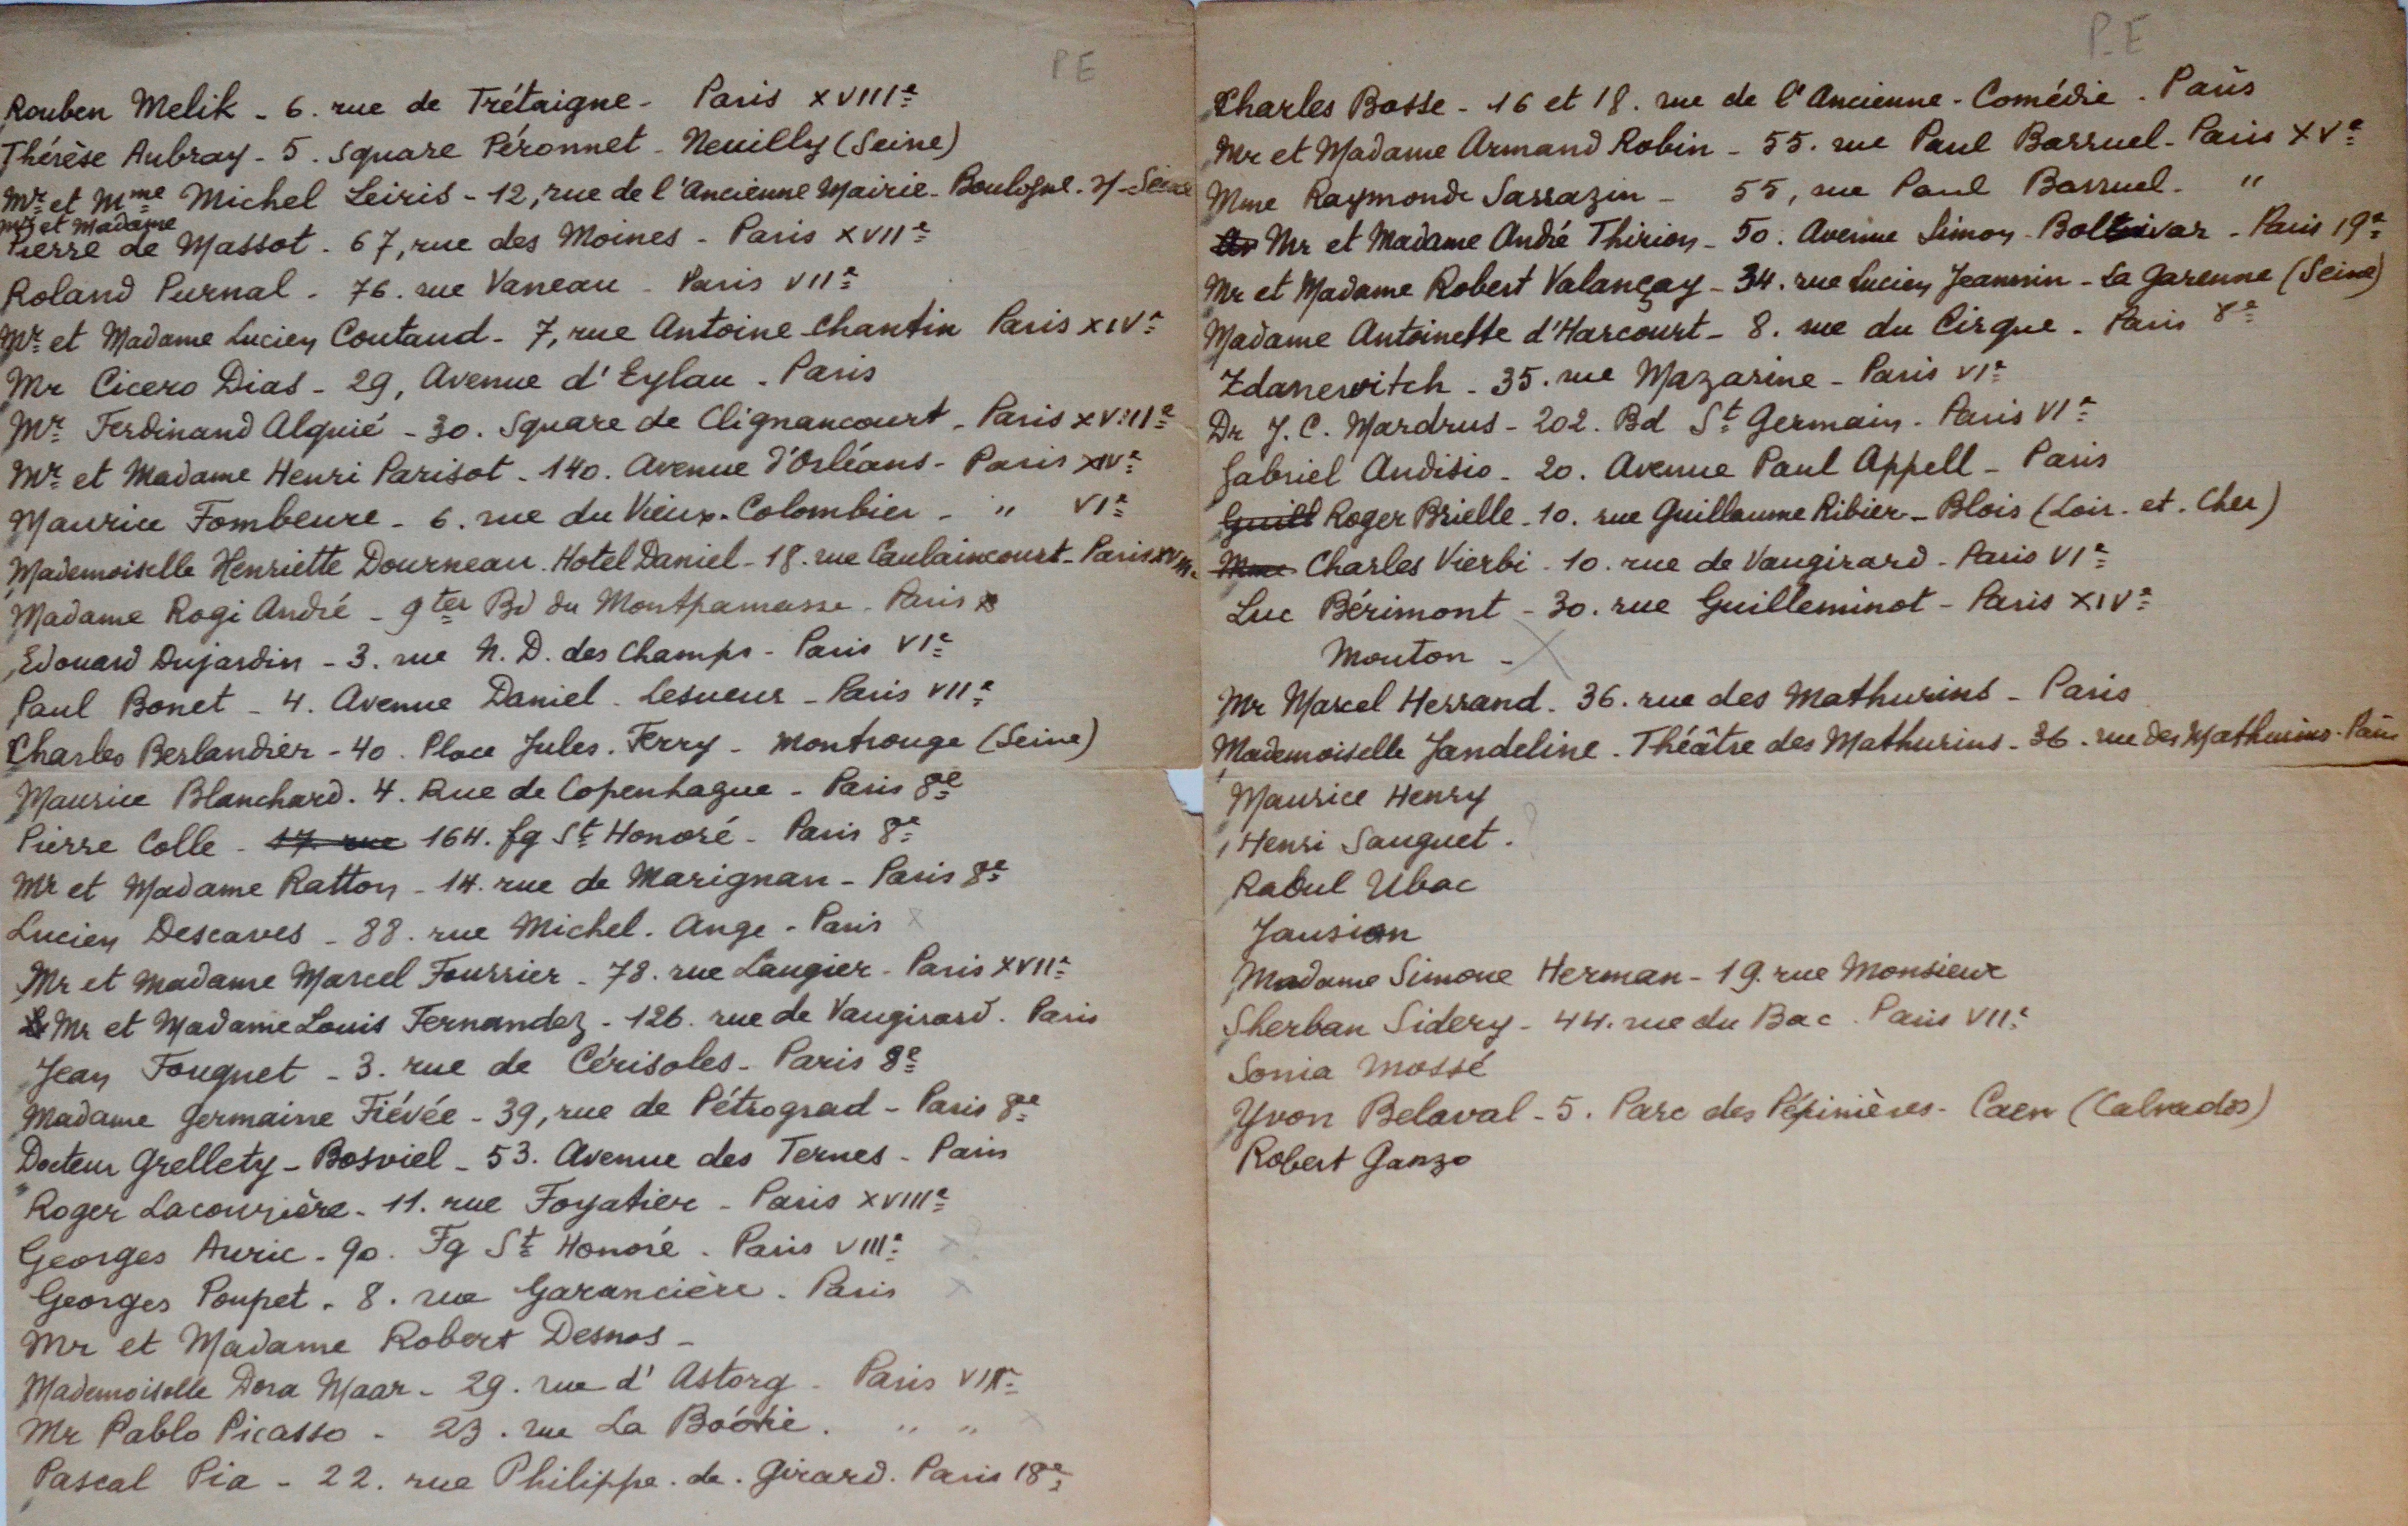 PE
Rouben Melik - 6. rue de Trétaigne - Paris XVIIIe
Thérèse Aubray - 5. Square Péronnet - Neuilly (Seine)
Mr et Mme Michel Leiris - 12, rue de l'Ancienne Mairie - Boulogne-s/-Seine
Mr et Madame
Pierre de Massot - 67, rue des Moines - Paris XVIIe
Roland Purnal - 76. rue Vaneau - Paris VIIe
Mr et Madame Lucien Coutaud - 7, rue Antoine Chantin Paris XIVe
Mr Cicero Dias - 29, Avenue d'Eylau - Paris
Mr Ferdinand Alquié - 30. Square de Clignancourt - Paris XVIIIe
Mr et Madame Henri Parisot - 140. Avenue d'Orléans - Paris XIVe
Maurice Fombeure - 6. rue du Vieux-Colombier - " VIe
Mademoiselle Henriette Dourneau. Hotel Daniel - 18. rue Caulaincourt - Paris
Madame Rogi André - 9ter Bd du Montparnasse - Paris
Edouard Dujardin - 3. rue N. D. des Champs - Paris VIe
Paul Bonet - 4. Avenue Daniel-Lesueur - Paris VIIe
Charles Berlandier - 40. Place Jules. Ferry - Montrouge (Seine)
Maurice Blanchard. 4. Rue de Copenhague - Paris 8e
Pierre Colle - 17 rue 164. fg St Honoré - Paris 8e
Mr et Madame Ratton - 14. rue de Marignan - Paris 8e
Lucien Descaves - 88. rue Michel. Ange - Paris X
Mr et Madame Marcel Fourrier - 78. rue Laugier - Paris XVIIe
Mr et Madame Louis Fernandez - 126. rue de Vaugirard. Paris
Jean Fouquet - 3. rue de Cérisoles - Paris 8e
Madame Germaine Fiévée - 39, rue de Pétrograd - Paris 8e
Docteur Grellety - Bosviel - 53. Avenue des Ternes - Paris
Roger Lacourière - 11. rue Foyatier - Paris XVIIIe
Georges Auric - 90. Fg St Honoré. Paris VIIIe X?
Georges Poupet. 8. rue Garancière. Paris X
Mr et Madame Robert Desnos -
Mademoiselle Dora Maar - 29. rue d'Astorg - Paris VIIIe
Mr Pablo Picasso - 23. rue La Boétie. " " X
Pascal Pia - 22. rue Philippe. de. Girard. Paris 18e
P.E
Charles Bosse - 16 et 18. rue de l'Ancienne-Comédie. Paris
Mr et Madame Armand Robin - 55. rue Paul Barruel - Paris XVe
Mme Raymonde Sarrazin - 55, rue Paul Barruel - "
Mr et Madame André Thirion - 50. Avenue Simon-Bolivar - Paris 19e
Mr et Madame Robert Valançay - 34. rue Lucien Jeannin - La Garenne (Seine)
Madame Antoinette d'Harcourt - 8. rue du Cirque - Paris 8e
Zdanewitch - 35. rue Mazarine - Paris VIe
Dr J. C. Mardrus - 202. Bd St Germain - Paris VIe
Gabriel Audisio - 20. Avenue Paul Appell - Paris
Guill Roger Brielle - 10. rue Guillaume Ribier - Blois (Loir. et. Cher)
Mme Charles Vierbi - 10. rue de Vaugirard - Paris VIe
Luc Bérimont - 30. rue Guilleminot - Paris XIVe
Mouton - X
Mr Marcel Herrand - 36. rue des Mathurins - Paris
Mademoiselle Jandeline. Théâtre des Mathurins - 36. rue des Mathurins - Paris
Maurice Henry
Henri Sauguet. ?
Raoul Ubac
Jausion
Madame Simone Herman - 19. rue Monsieur
Sherban Sidery - 44. rue du Bac. Paris VIIe
Sonia Mossé
Yvon Belaval - 5. Parc des Pépinières - Caen (Calvados)
Robert Ganzo